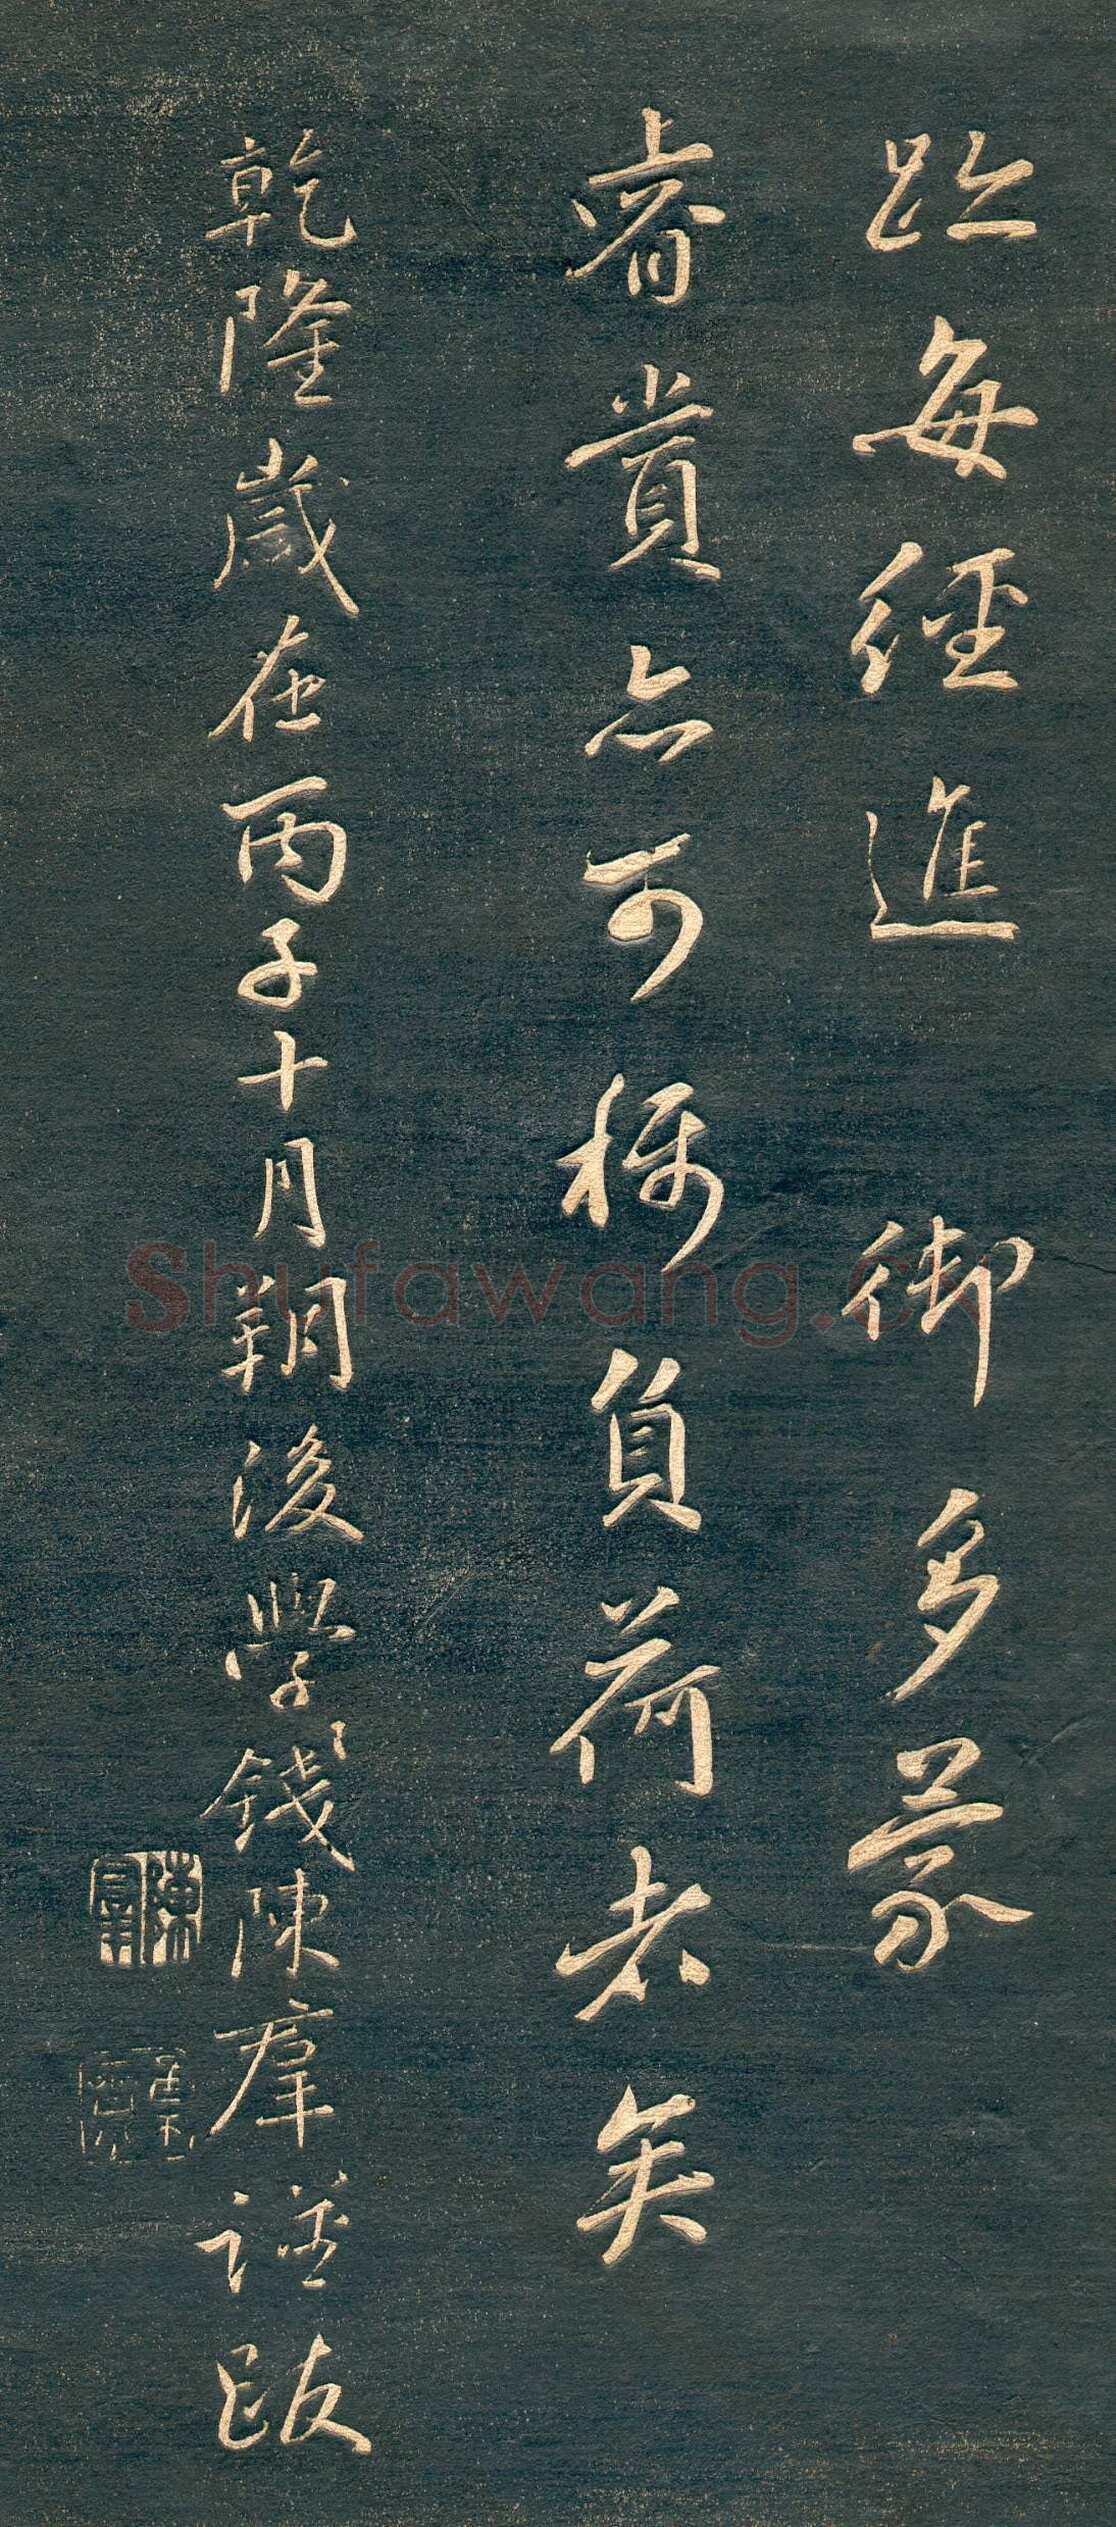 趾每經進 御多蒙
睿賞亦可稱負荷者矣
乾隆歲在丙子十月朔後學錢陳羣謹跋
陳羣
Shufawang.cn